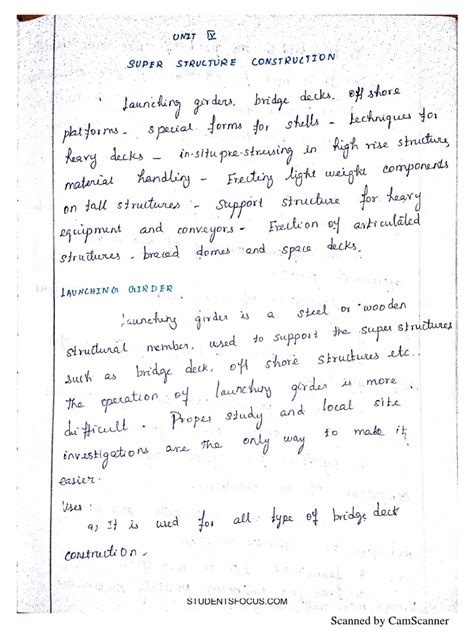 UNIT IV
SUPER STRUCTURE CONSTRUCTION
Launching girders, bridge decks, off shore
platforms - special forms for shells - techniques for
heavy decks - in-situ pre-stressing in high rise structure,
material handling - Erecting light weight components
on tall structures - Support structure for heavy
equipment and conveyors - Erection of articulated
structures, braced domes and space decks.
LAUNCHING GIRDER
Launching girder is a steel or wooden
structural member, used to support the super structures
such as bridge deck, off shore structures etc..
The operation of launching girder is more
difficult. Proper study and local site
investigations are the only way to make it
easier.
Uses:
a) It is used for all type of bridge deck
construction.
STUDENTSFOCUS.COM
Scanned by CamScanner